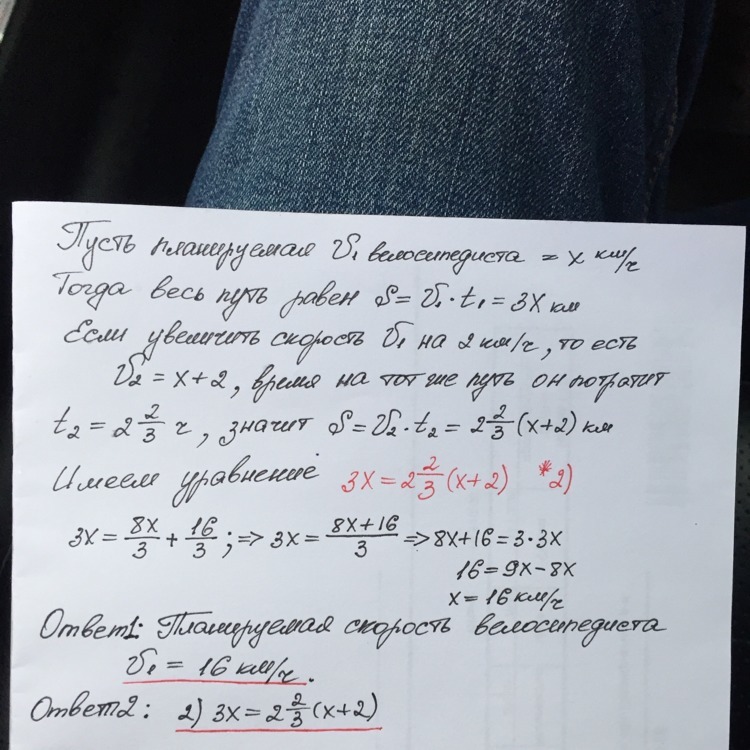 Пусть планируемая V₁ велосипедиста = x км/ч
Тогда весь путь равен S = V₁ · t₁ = 3x км
Если увеличить скорость V₁ на 2 км/ч, то есть
V₂ = x + 2, время на тот же путь он потратит
t₂ = 2 2/3 ч, значит S = V₂ · t₂ = 2 2/3 (x+2) км
Имеем уравнение 3x = 2 2/3 (x+2) *2)
3x = 8x/3 + 16/3 ; => 3x = (8x+16)/3 => 8x+16 = 3·3x
16 = 9x − 8x
x = 16 км/ч
Ответ1: Планируемая скорость велосипедиста
V₁ = 16 км/ч.
Ответ2: 2) 3x = 2 2/3 (x+2)